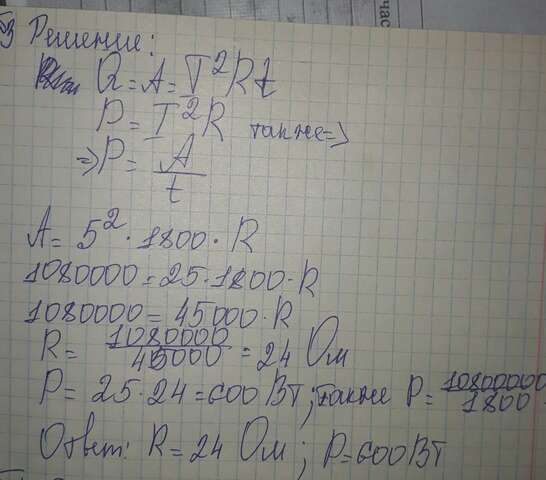 час
№3 Решение:
Q = A = I²Rt
P = I²R также =>
=> P = A/t
A = 5² · 1800 · R
1080000 = 25 · 1800 · R
1080000 = 45000 · R
R = 1080000/45000 = 24 Ом
P = 25 · 24 = 600 Вт ; также P = 10800000/1800
Ответ: R = 24 Ом ; P = 600 Вт